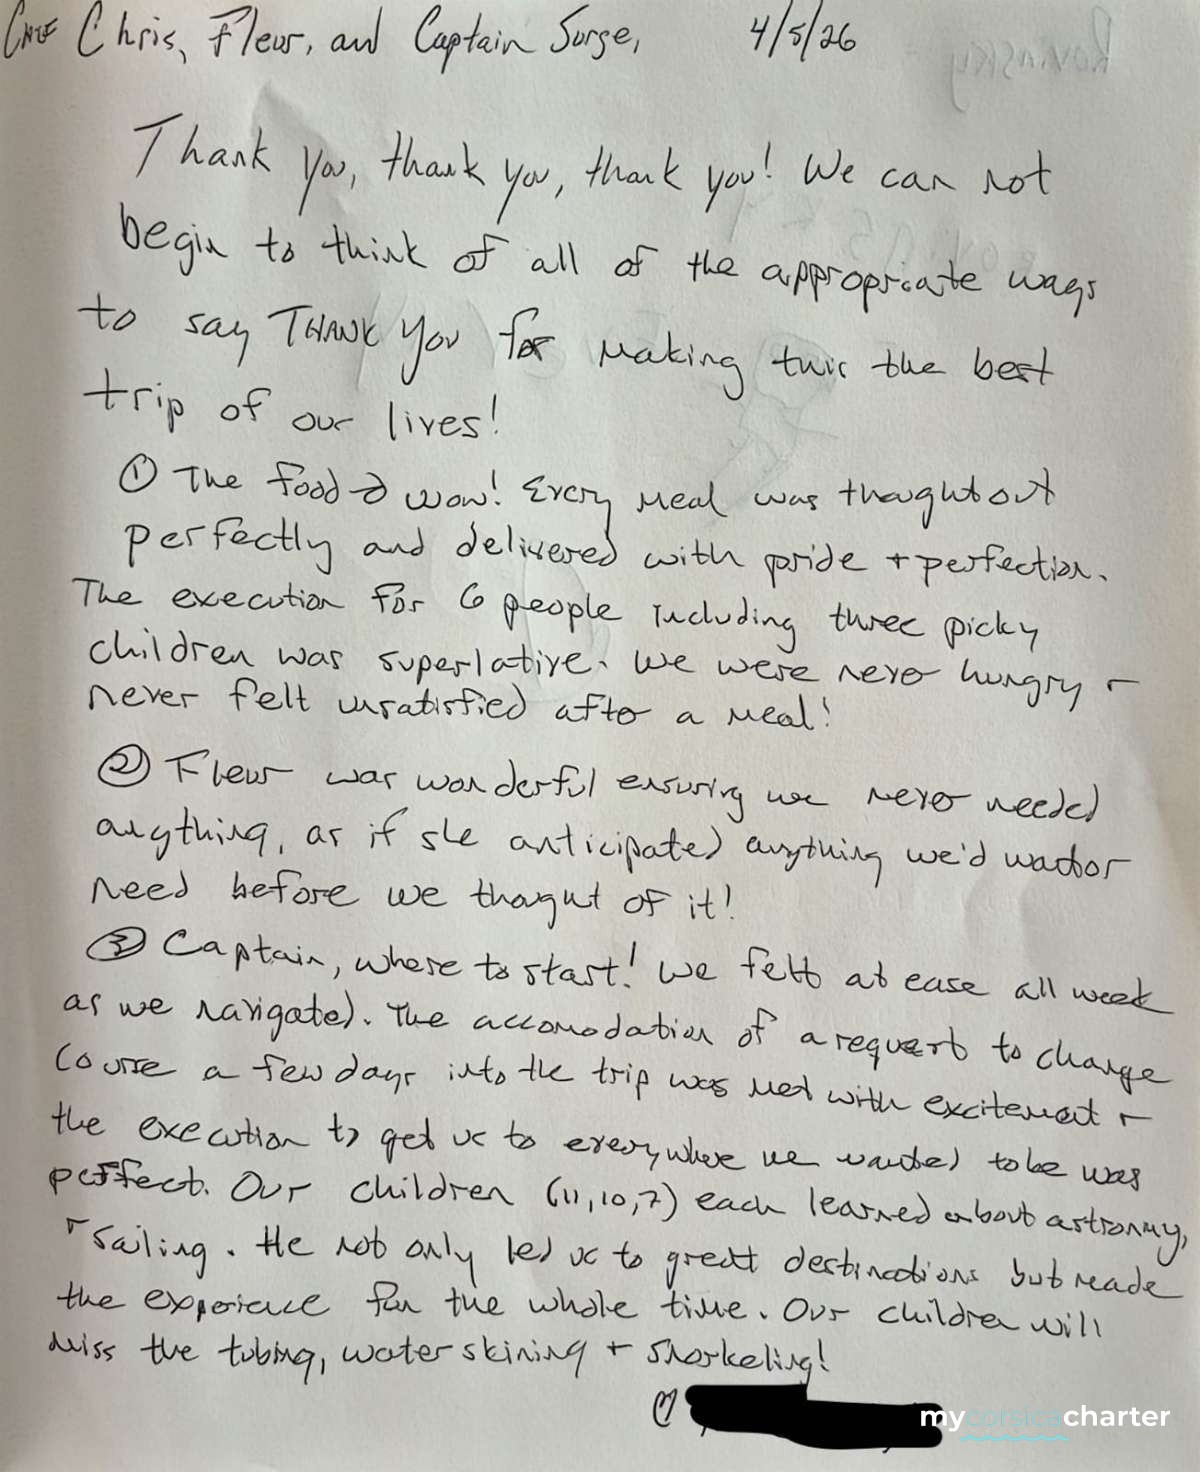 Chef Chris, Fleur, and Captain Sorge, 4/5/26
Thank you, thank you, thank you! We can not
begin to think of all of the appropriate ways
to say THANK You for making this the best
trip of our lives!
① The food → wow! Every meal was thought out
perfectly and delivered with pride + perfection.
The execution for 6 people including three picky
children was superlative. We were never hungry +
never felt unsatisfied after a meal!
② Fleur was wonderful ensuring we never needed
anything, as if she anticipated anything we'd want or
need before we thought of it!
③ Captain, where to start! We felt at ease all week
as we navigated. The accomodation of a request to change
course a few days into the trip was met with excitement +
the execution to get us to everywhere we wanted to be was
perffect. Our children (11,10,7) each learned about astronmy,
+ sailing. He not only led us to great destinations but made
the experience fun the whole time. Our children will
miss the tubing, water skining + snorkeling!
♡
mycorsicacharter